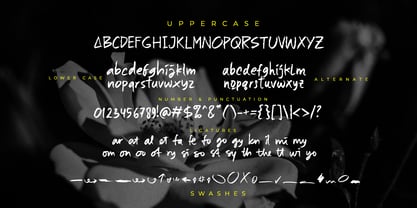 UPPERCASE
ABCDEFGHIJKLMNOPQRSTUVWXYZ
LOWER CASE
abcdefghijklm
nopqrstuvwxyz
abcdefghijklm
nopqrstuvwxyz
ALTERNATE
NUMBER & PUNCTUATION
0123456789!@#$%^&*()-+={}[]\|<>/?
LIGATURES
ar at al of fa fe fo go gy kn il mi my
om on oo of ry si so st sy th the tt wi yo
SWASHES